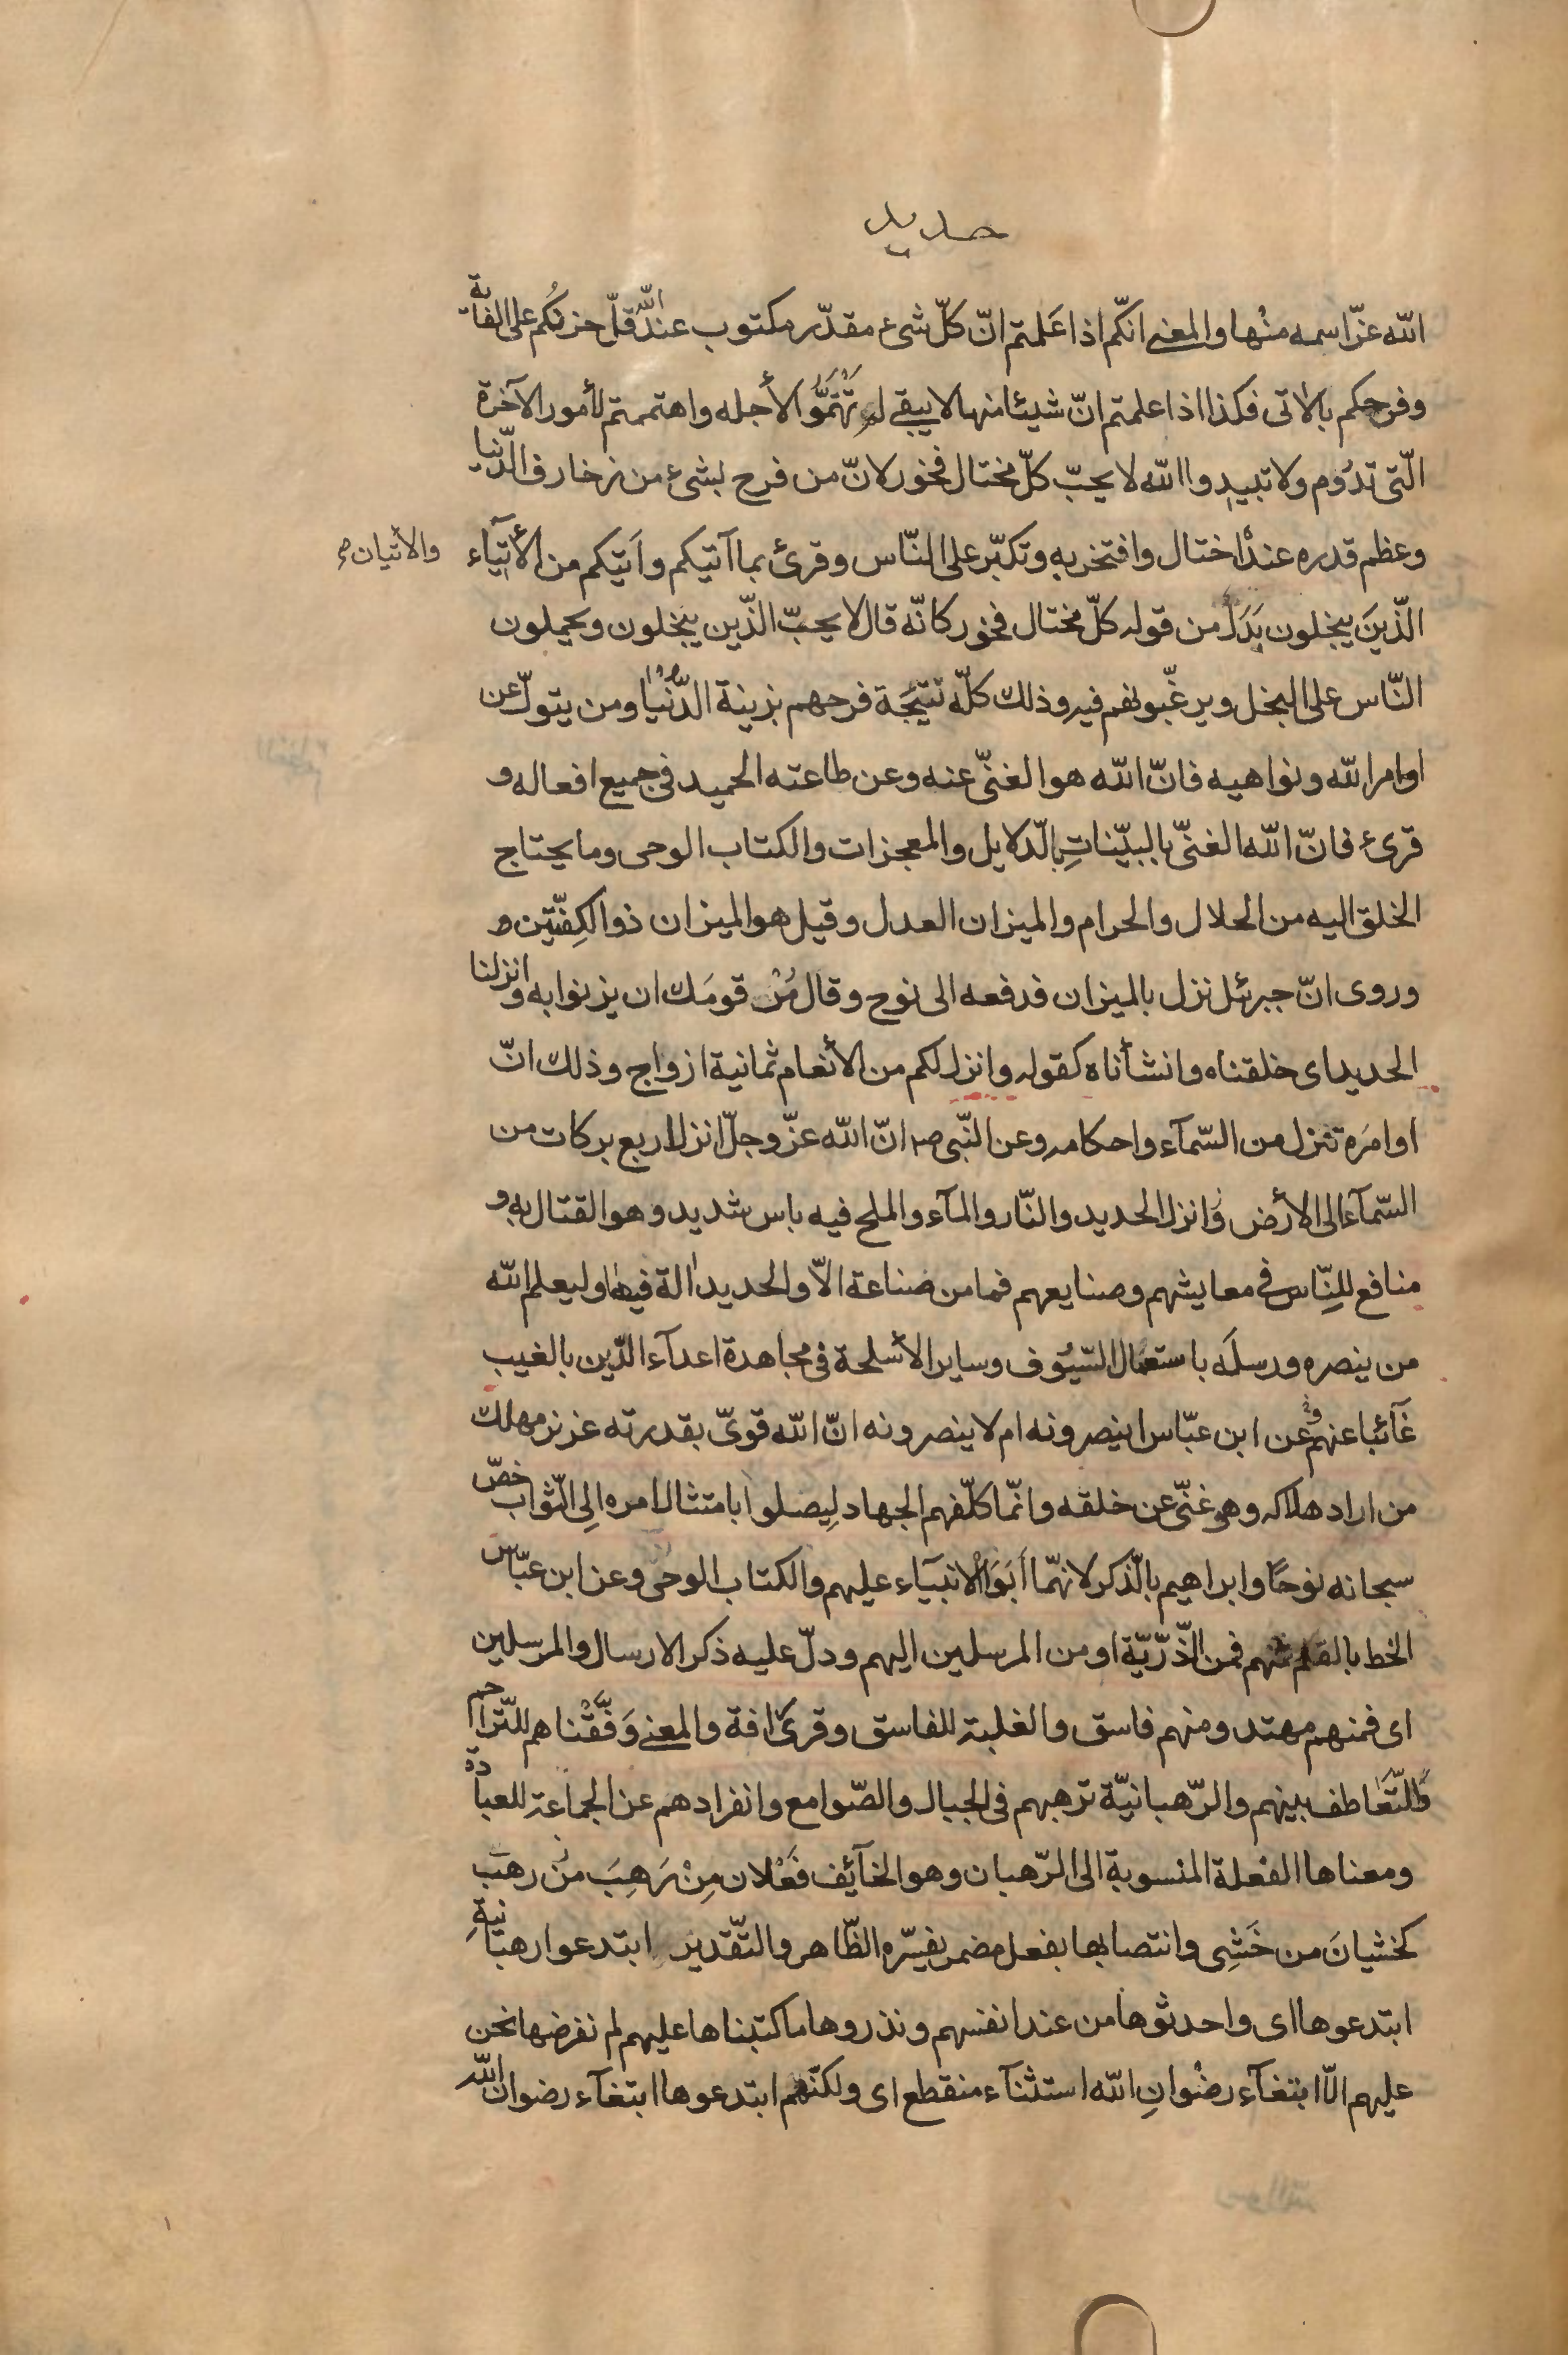 حديد
الله عزّ اسمه منْها والمعنى انّكم اذا عَلمتم انّ كلّ شئ مقدّر مكتوب عند الله قلّ حزنُكم على الفائت
وفرحكم بالآتى فكذا اذا علمتم انّ شيئا منها لا يبقى لم تَهْتَمُّوا لأجله واهتممتم لأمور الآخرة
الّتى تدُوم ولا تبيد واالله لا يحبّ كلّ مختال فخور لانّ من فرح بشئ من زخارف الدّنيا
وعظم قدره عنده اختال وافتخر به وتكبّر على النّاس وقرئ بما آتيكم وأتيكم من الأيتآء
والأتيان صح
الّذينَ يبخلون بَدَل من قوله كلّ مختال فخور كانّه قال لا يحبّ الذّين يبخلون ويحملون
النّاس على البخل ويرغّبونهم فيه وذلك كلّه نتيجَة فرحهم بزينة الدُّنْيا ومن يتولّ عن
اوامر الله ونواهيه فانّ الله هو الغنىّ عنه وعن طاعته الحميد فى جميع افعاله و
قرئ فانّ الله الغنىّ بالبيّناتِ بالدّلايل والمعجزات والكتاب الوحى وما يحتاج
الخلق اليه من الحلال والحرام والميزان العدل وقيل هو الميزان ذو الكِفّتين و
وروى انّ جبرئل نزل بالميزان فدفعه الى نوح وقال مُرْ قومَك ان يزنوا به وانزلنا
الحديد اى خلقناه وانشأناه كقوله وانزل لكم من الأنعام ثمانية ازواج وذلك انّ
اوامرَه تنزل من السّمآء واحكامه وعن النّبى ص انّ الله عزّ وجلّ انزل اربع بركات من
السّمآء الى الأرض وَانزل الحديد والنّار والمآء والملح فيه باس شديد وهو القتال به و
منافع للنّاس فى معايشهم وصنايعهم فما من صناعة الاّ والحديد الة فيها وليعلم الله
من ينصره ورسلَه باستعمال السّيُوف وساير الأسلحة فى مجاهدة اعدآء الدّين بالغيب
غآئبا عنهم وعن ابن عبّاس اينصرونه ام لا ينصرونه انّ الله قوىّ بقدرته عزيز مهلك
من اراد هلاكه وهو غنىّ عن خلقه وانّما كلّفهم الجهاد لِيصلوا بامتثال امره الِى الثّواب خصّ
سبحانه نوحًا وابراهيم بالذّكر لانهّما أبَوَا الانبيآء عليهم والكتاب الوحى وعن ابن عبّاس
الخط بالقلم فمنهم فمن الذّرّيّة او من المرسلين اليهم ودلّ عليه ذكر الارسال والمرسلين
اى فمنهم مهتد ومنهم فاسق والغلبة للفاسق وقرئ افة والمعنى وَفّقْناهم للتّراحم
والتّعَاطف بينهم والرّهبانيّة ترهبهم فى الجبال والصّوامع وانفرادهم عن الجماعة للعبادة
ومعناها الفعْلة المنسوبة الى الرّهبان وهو الخآئف فَعْلان مِنْ رَهِبَ من رهب
كخشيانَ من خَشِى وانتصابها بفعل مضمر يفسّره الظّاهر والتّقدير ابتدعوا رهبانيّةِ
ابتدعوها اى واحدثوها من عند انفسهم ونذروها ما كتبناها عليهم لم نفرضها نحن
عليهم الاّ ابتغآء رضْوانِ الله استثنآء منقطع اى ولكنّهم ابتدعوها ابتغآء رضوان الله